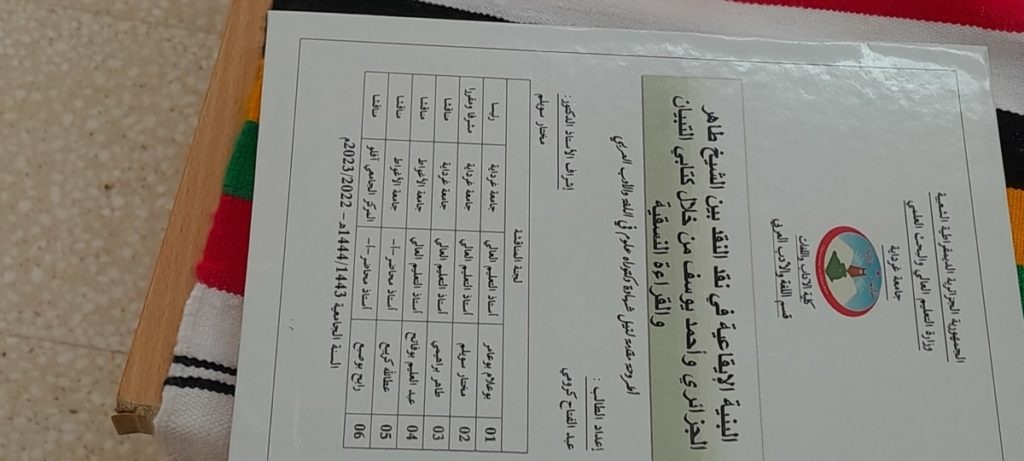 الجمهورية الجزائرية الديمقراطية الشعبية
وزارة التعليم العالي والبحث العلمي
جامعة غرداية
كلية الآداب واللغات
قسم اللغة والأدب العربي
البنية الإيقاعية في نقد النقد بين الشيخ طاهر
الجزائري وأحمد يوسف من خلال كتابي التبيان
والقراءة النسقية
أطروحة مقدمة لنيل شهادة دكتوراه علوم في اللغة والأدب العربي
إعداد الطالب : إشراف الأستاذ الدكتور:
عبد الفتاح كرومي مختار سويلم
لجنة المناقشة
01 بوعلام بوعامر أستاذ التعليم العالي جامعة غرداية رئيسا
02 مختار سويلم أستاذ التعليم العالي جامعة غرداية مشرفا ومقررا
03 طاهر براهيمي أستاذ التعليم العالي جامعة غرداية مناقشا
04 عبد العليم بوفاتح أستاذ التعليم العالي جامعة الأغواط مناقشا
05 عطالله كريبع أستاذ محاضر -أ- جامعة الأغواط مناقشا
06 رابح بوصبع أستاذ محاضر -أ- المركز الجامعي أفلو مناقشا
السنة الجامعية 1444/1443هـ - 2023/2022م